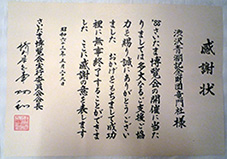 感謝状
渋沢青淵記念財団竜門社様
'88さいたま博覧会の開催に当た
りましては多大なるご支援ご協
力を賜り誠にありがとうござい
ました おかげをもちまして成功
裡に無事終了することができま
した ここに感謝の意を表します
昭和六十三年五月二十九日
さいたま博覧会実行委員会会長